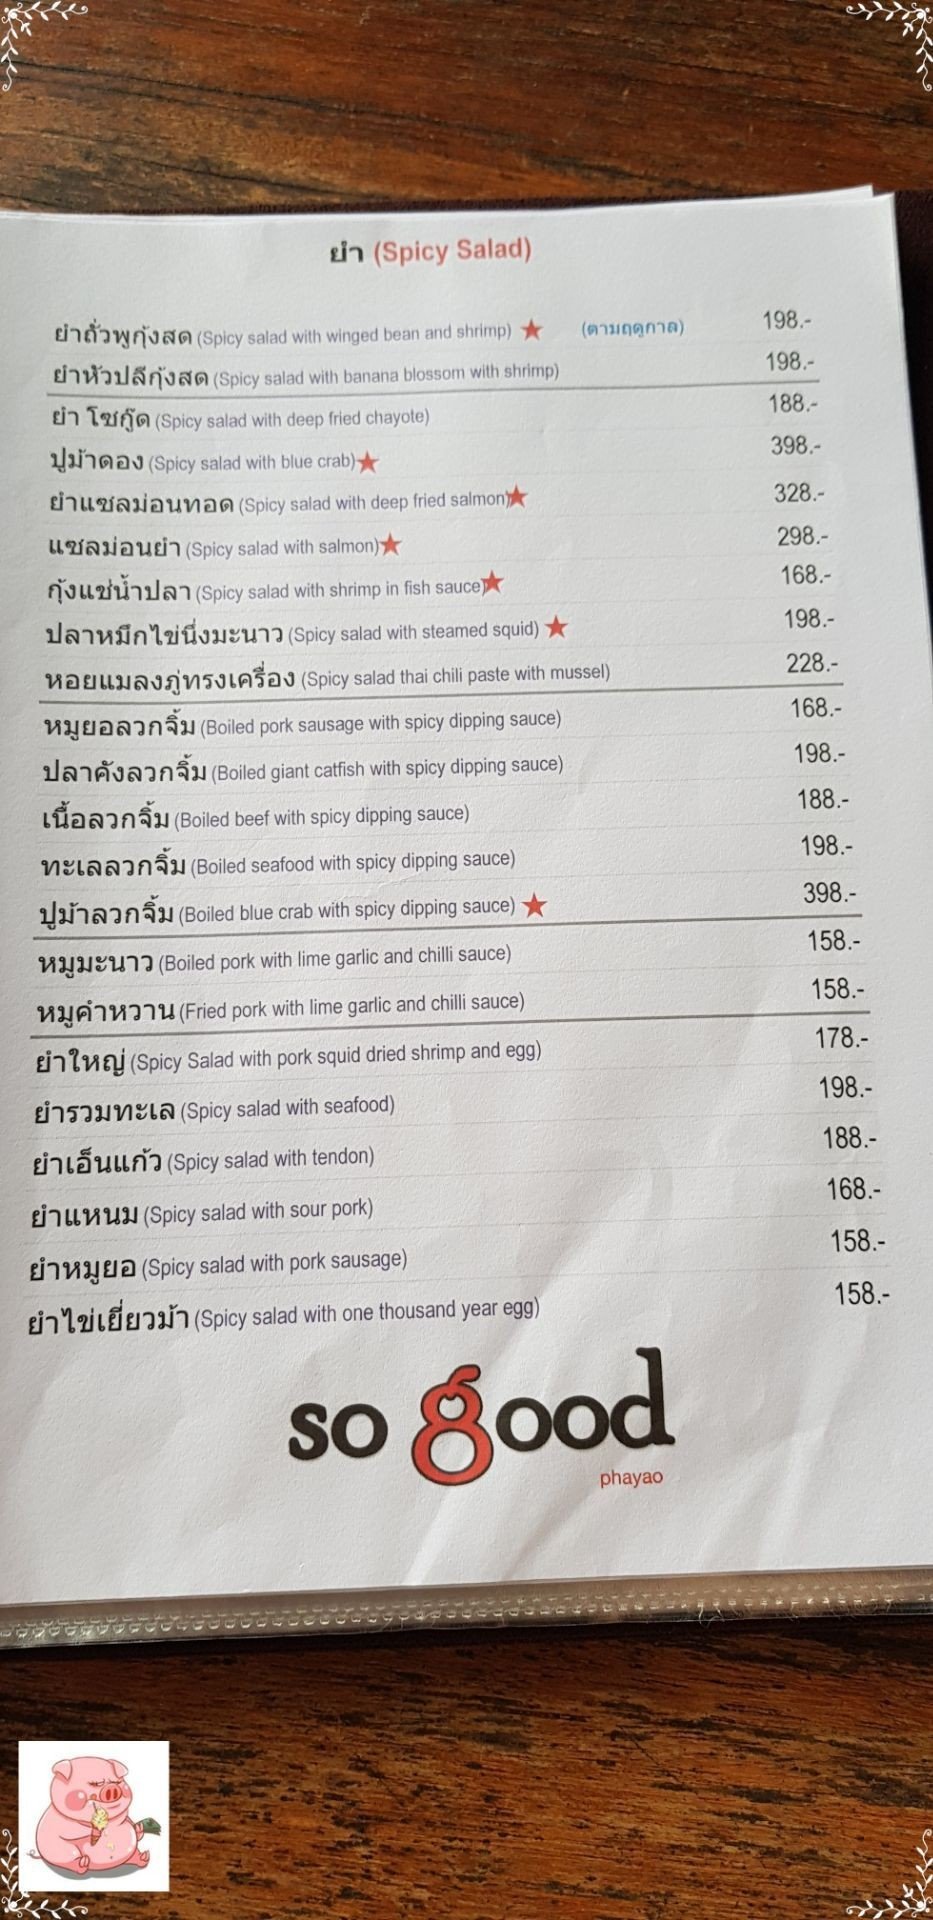 ยำ (Spicy Salad)
ยำถั่วพูกุ้งสด (Spicy salad with winged bean and shrimp) ★ (ตามฤดูกาล) 198.-
ยำหัวปลีกุ้งสด (Spicy salad with banana blossom with shrimp) 198.-
ยำ โซกู๊ด (Spicy salad with deep fried chayote) 188.-
ปูม้าดอง (Spicy salad with blue crab) ★ 398.-
ยำแซลม่อนทอด (Spicy salad with deep fried salmon) ★ 328.-
แซลม่อนยำ (Spicy salad with salmon) ★ 298.-
กุ้งแช่น้ำปลา (Spicy salad with shrimp in fish sauce) ★ 168.-
ปลาหมึกไข่นึ่งมะนาว (Spicy salad with steamed squid) ★ 198.-
หอยแมลงภู่ทรงเครื่อง (Spicy salad thai chili paste with mussel) 228.-
หมูยอลวกจิ้ม (Boiled pork sausage with spicy dipping sauce) 168.-
ปลาคังลวกจิ้ม (Boiled giant catfish with spicy dipping sauce) 198.-
เนื้อลวกจิ้ม (Boiled beef with spicy dipping sauce) 188.-
ทะเลลวกจิ้ม (Boiled seafood with spicy dipping sauce) 198.-
ปูม้าลวกจิ้ม (Boiled blue crab with spicy dipping sauce) ★ 398.-
หมูมะนาว (Boiled pork with lime garlic and chilli sauce) 158.-
หมูคำหวาน (Fried pork with lime garlic and chilli sauce) 158.-
ยำใหญ่ (Spicy Salad with pork squid dried shrimp and egg) 178.-
ยำรวมทะเล (Spicy salad with seafood) 198.-
ยำเอ็นแก้ว (Spicy salad with tendon) 188.-
ยำแหนม (Spicy salad with sour pork) 168.-
ยำหมูยอ (Spicy salad with pork sausage) 158.-
ยำไข่เยี่ยวม้า (Spicy salad with one thousand year egg) 158.-
so good
phayao